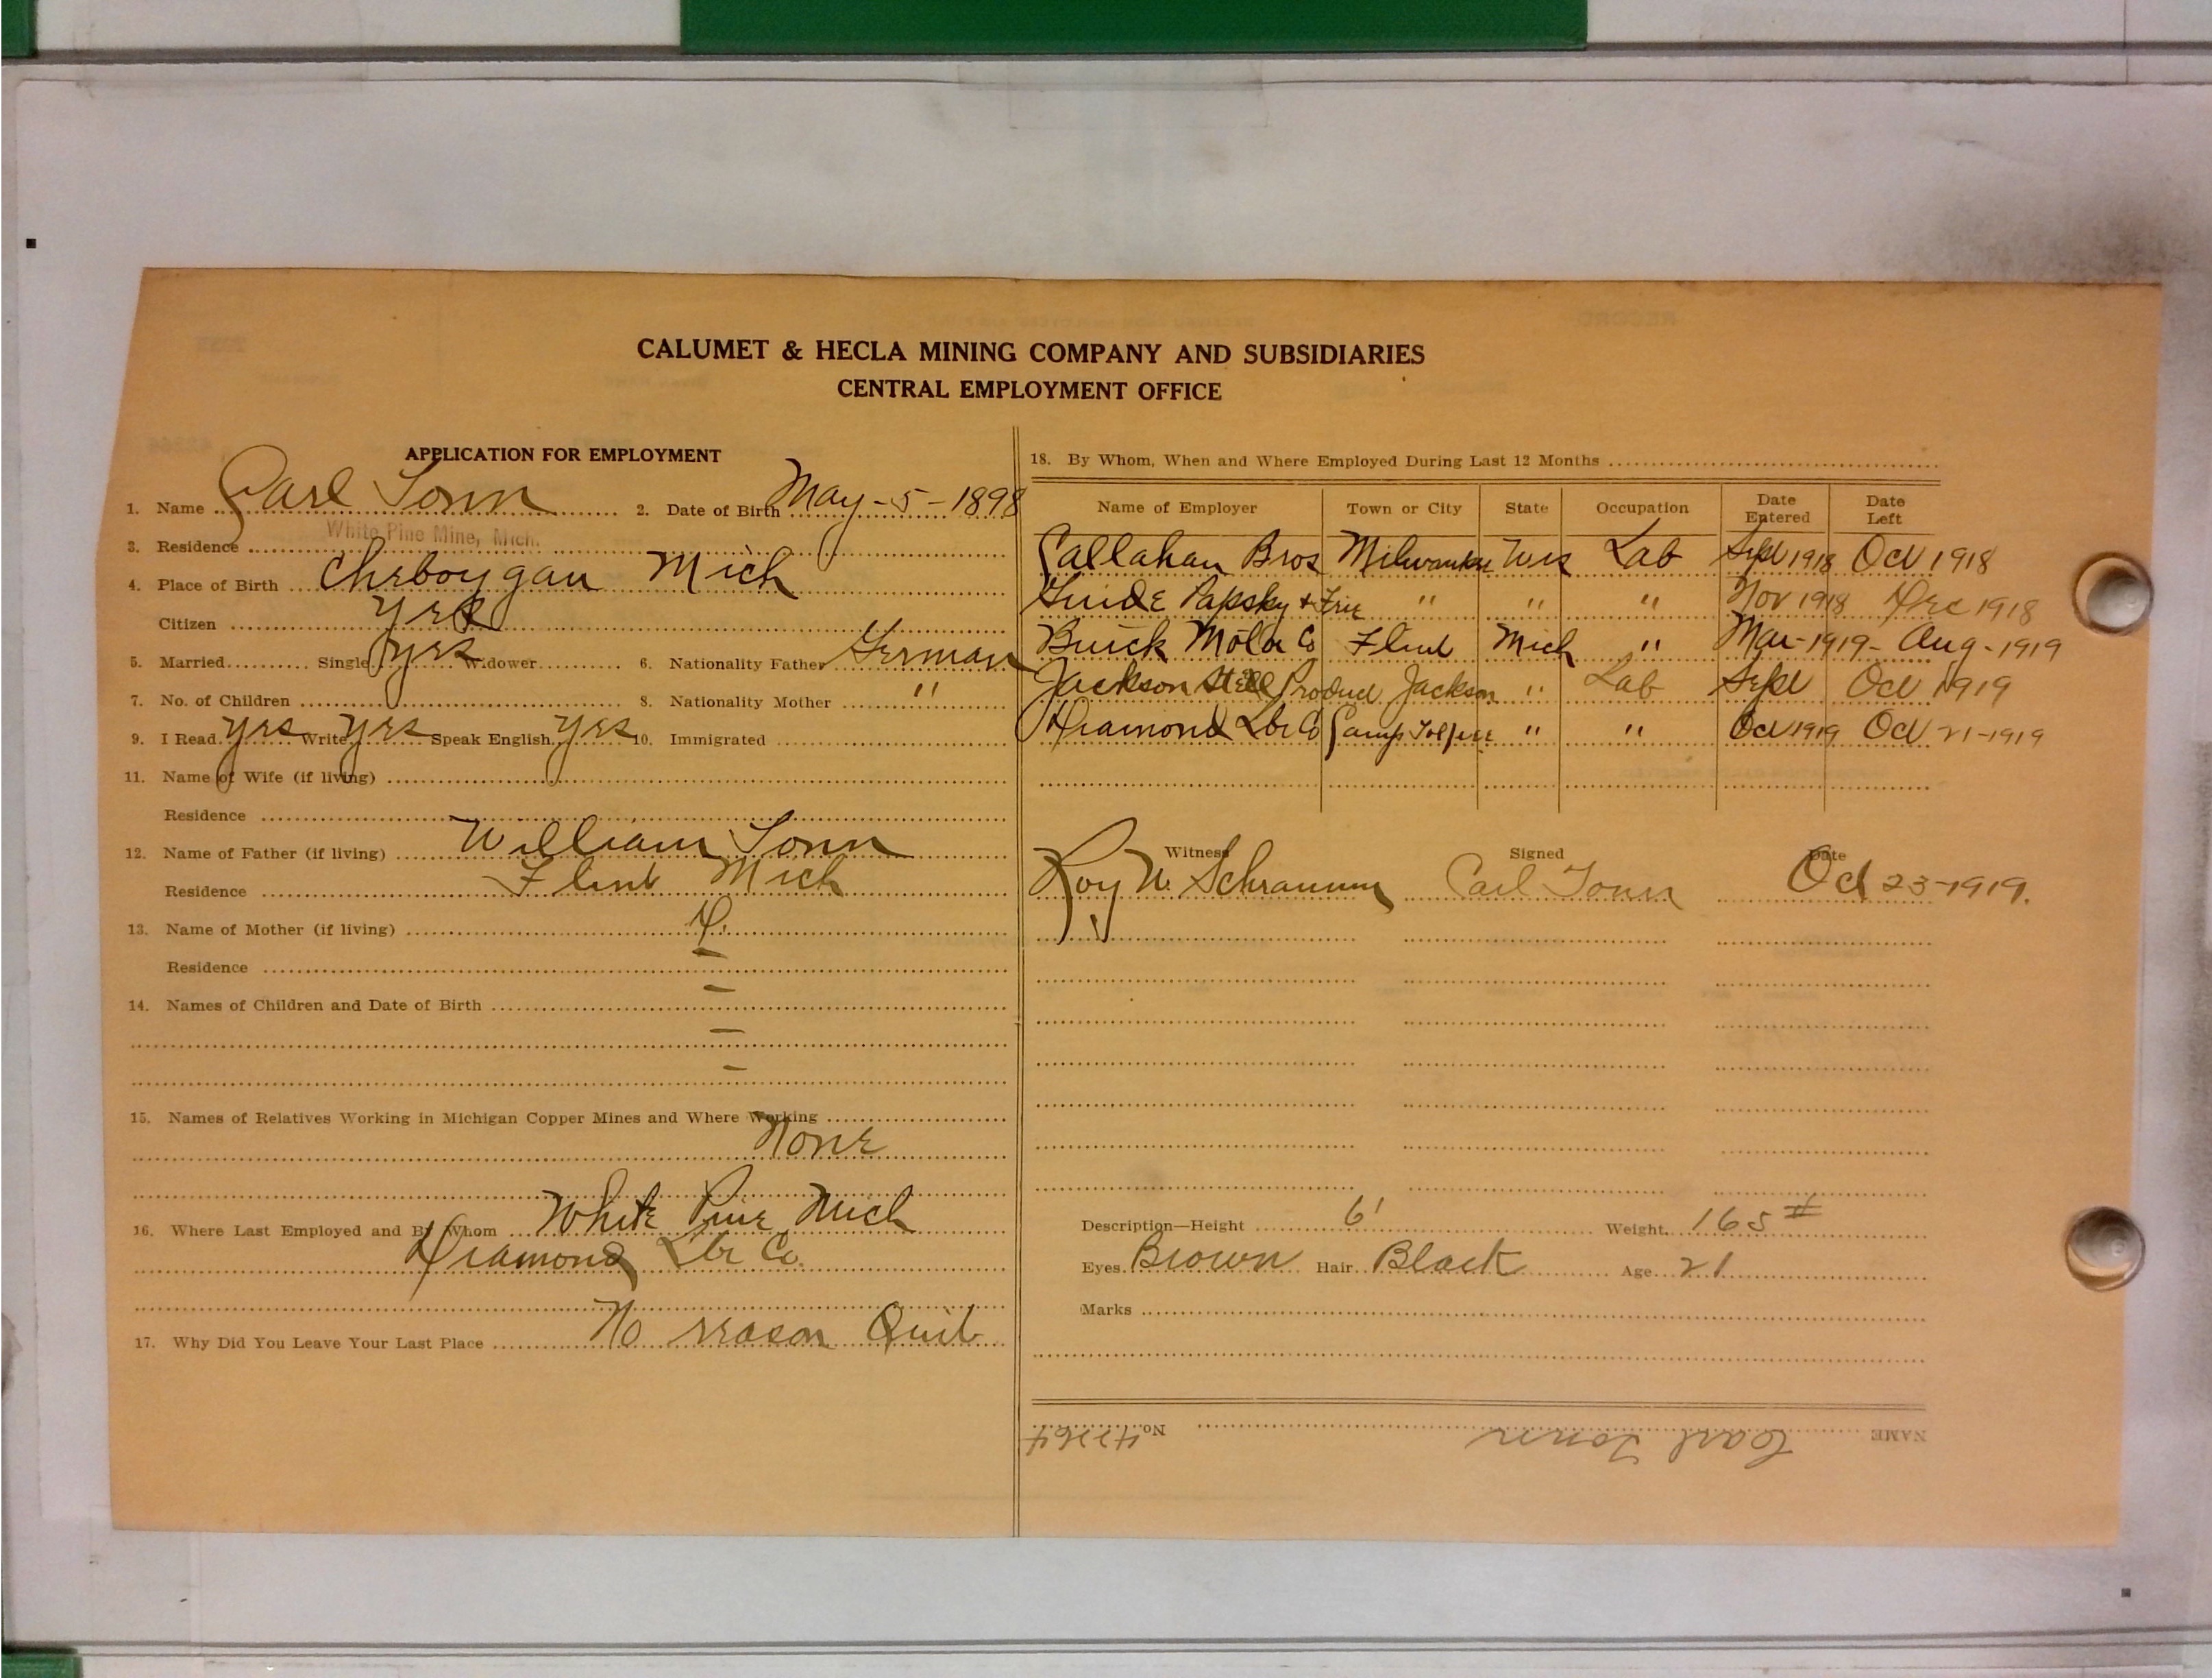 CALUMET & HECLA MINING COMPANY AND SUBSIDIARIES
CENTRAL EMPLOYMENT OFFICE
APPLICATION FOR EMPLOYMENT
1. Name Carl Tonn 2. Date of Birth May-5-1898
3. Residence White Pine Mine, Mich.
4. Place of Birth Cheboygan Mich
Citizen Yes
5. Married Single yes Widower 6. Nationality Father German
7. No. of Children 8. Nationality Mother "
9. I Read yes Write yes Speak English yes 10. Immigrated
11. Name of Wife (if living)
Residence
12. Name of Father (if living) William Tonn
Residence Flint Mich
13. Name of Mother (if living) D.
Residence –
14. Names of Children and Date of Birth –
–
–
15. Names of Relatives Working in Michigan Copper Mines and Where Working
None
16. Where Last Employed and By Whom White Pine Mich
Diamond Lbr Co.
17. Why Did You Leave Your Last Place No reason Quit
18. By Whom, When and Where Employed During Last 12 Months
Name of Employer Town or City State Occupation Date Entered Date Left
Callahan Bros Milwaukee Wis Lab Sept 1918 Oct 1918
" " " Nov 1918 Dec 1918
Buick Motor Co Flint Mich " Mar-1919- Aug-1919
Jackson Steel Product Jackson " Lab Sept Oct 1919
Diamond Lbr Co Camp " " Oct 1919 Oct 21-1919
Witness Signed Date
Roy W. Schramm Carl Tonn Oct 23-1919.
Description—Height 6' Weight 165#
Eyes Brown Hair Black Age 21
Marks
NAME Carl Tonn No. 42264